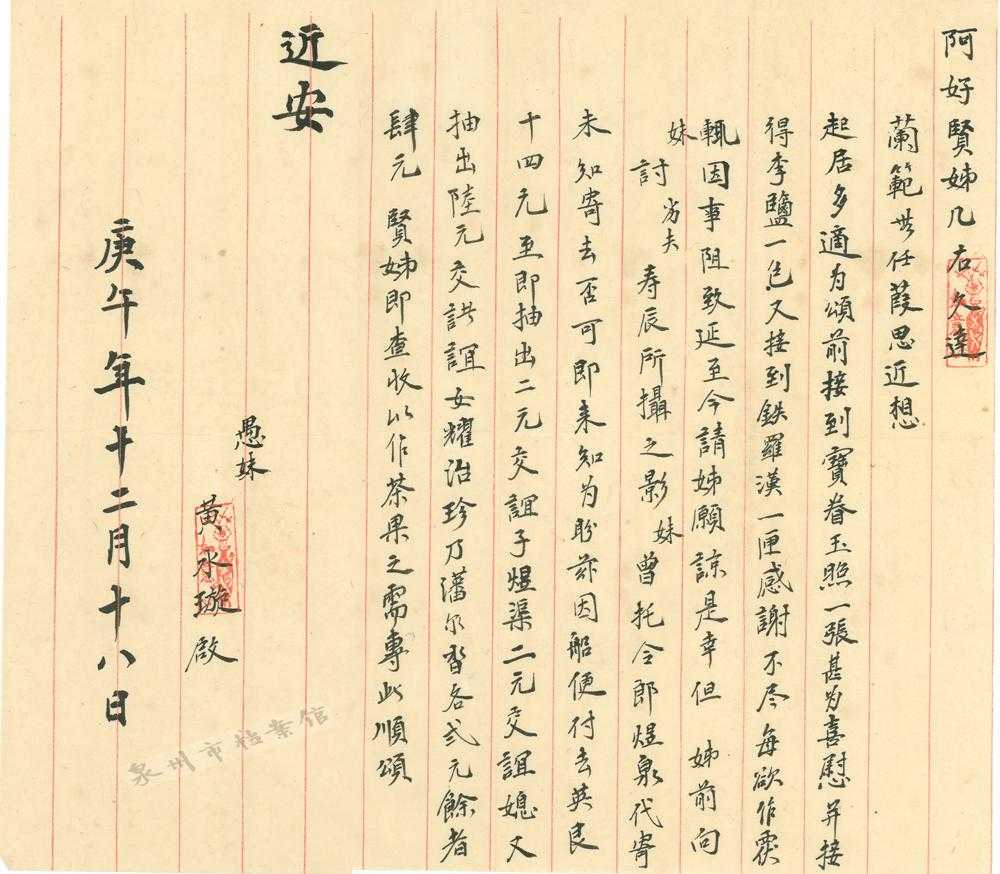 阿好賢姊几右久違
蘭範無任葭思近想
起居多適为頌前接到寶眷玉照一張甚为喜慰并接
得李鹽一包又接到鉄羅漢一匣感謝不尽每欲作覆
輒因事阻致延至今請姊願諒是幸但 姊前向
妹討劣夫寿辰所攝之影妹曾托令郎煜泉代寄
未知寄去否可即来知为盼茲因船便付去英良
十四元至即抽出二元交誼子煜渠二元交誼媳又
抽出陸元交誼女耀治珍乃各弍元餘者
肆元 賢姊即查收以作茶果之需專此順頌
近安
愚妹
黄永璇啟
庚午年十二月十八日
泉州市档案馆